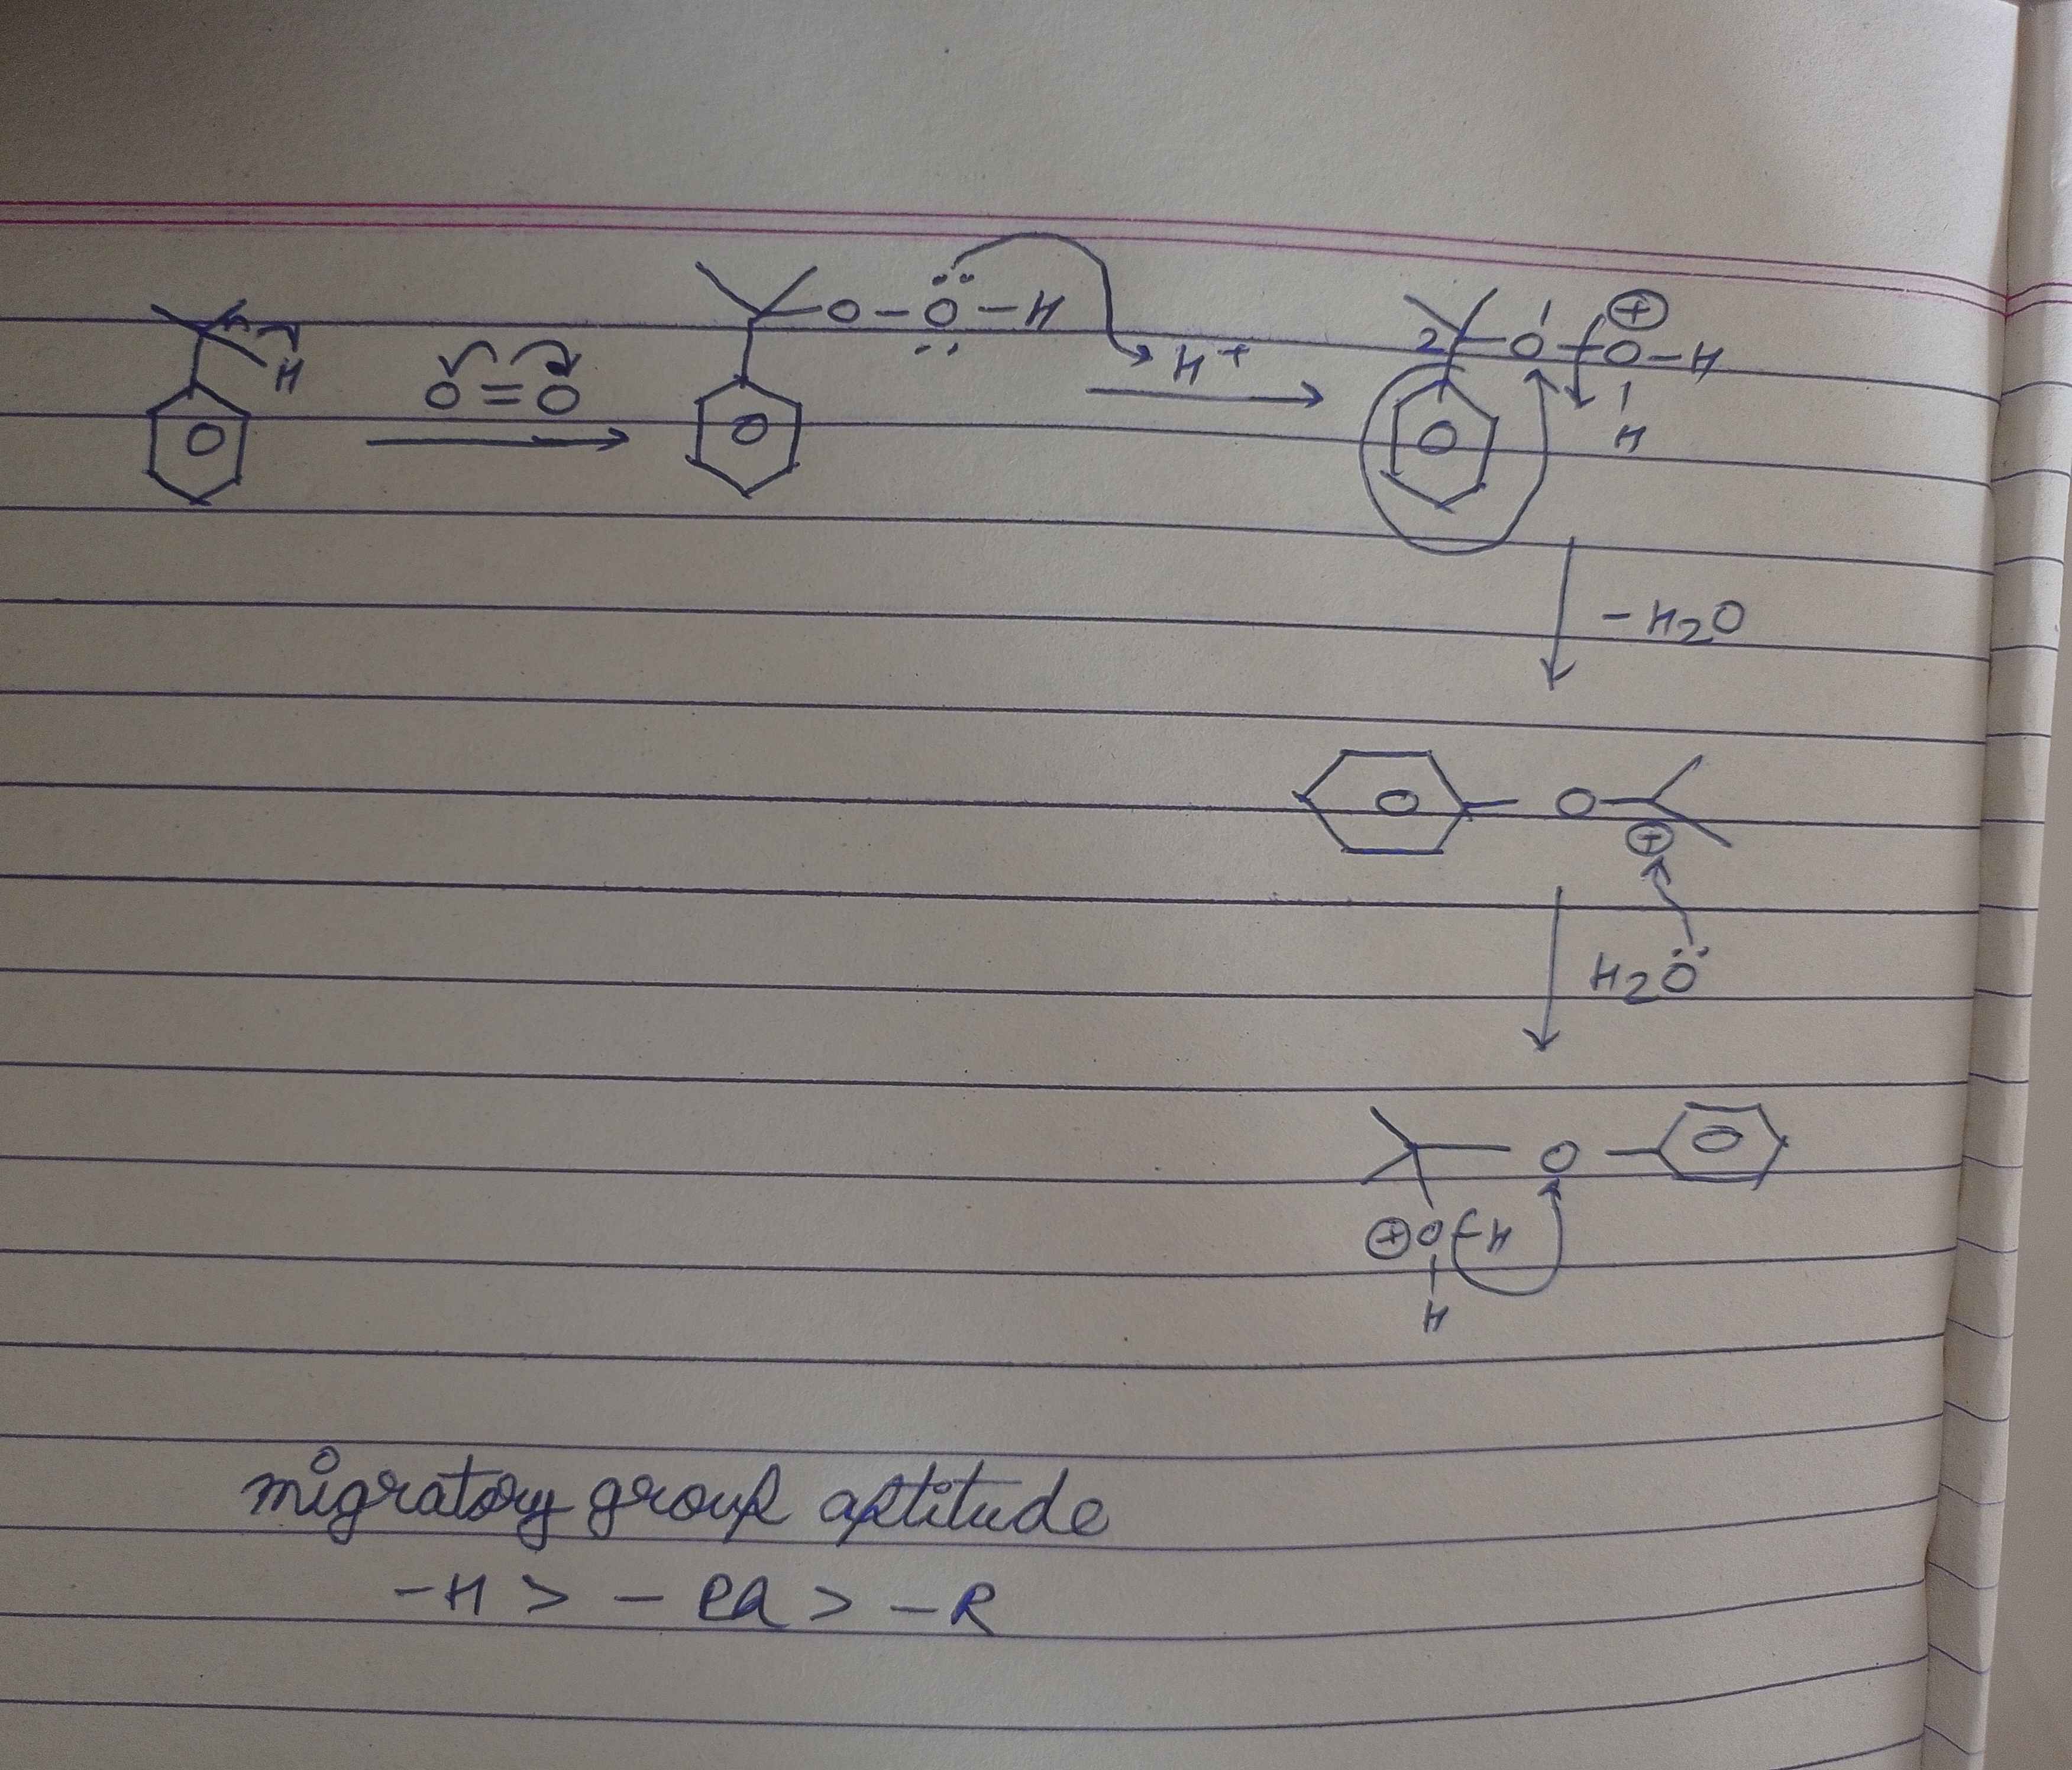 O - Ö - H
⊕
O - O - H
H
O = O
H
H⁺
H
- H₂O
O
⊕
H₂Ö
O
⊕ O - H
H
migratory group aptitude
- H > - Ph > - R